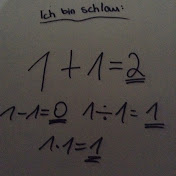 Ich bin schlau:
1+1=2
1-1=0 1÷1=1
1·1=1